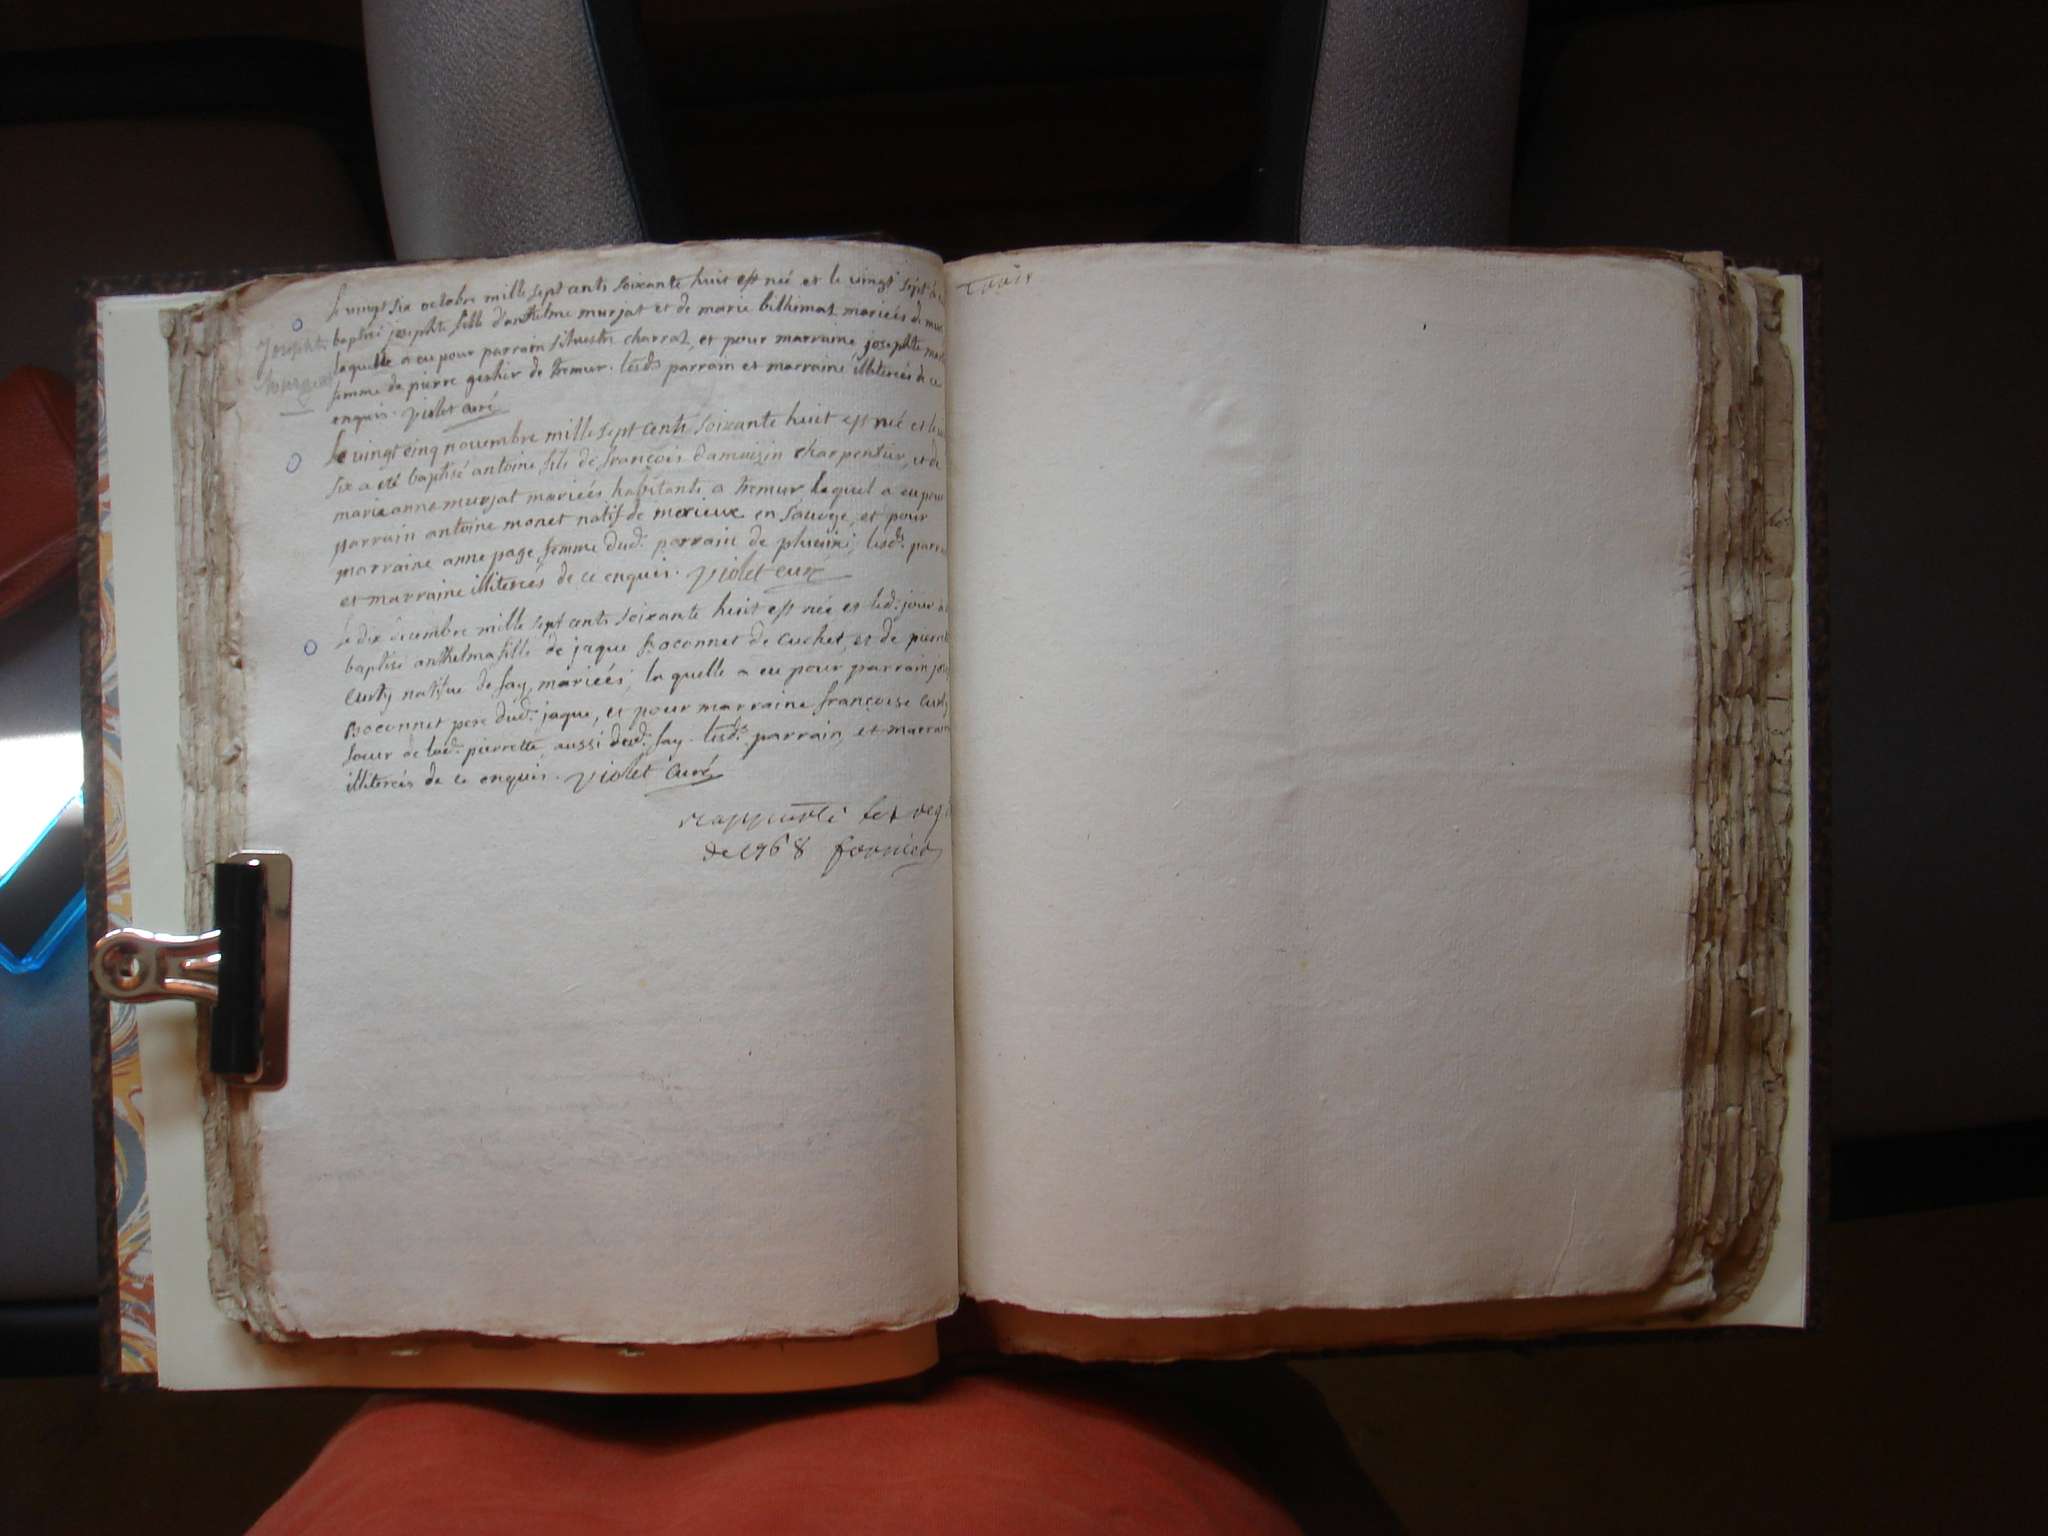 le vingt six octobre mille sept cents soixante huit est née et le vingt sept a
baptisé josephte fille d'anthelme murjat et de marie bilhemas mariés de mur
laquelle a eu pour parrain silvestre charrat, et pour marraine josephte
femme de pierre de tremur. lesds parrain et marraine illiterés de ce
enquis. violet curé
josephte
murjeat
le vingt cinq novembre mille sept cents soixante huit est né et le
six a eté baptisé antoine fils de françois damoizin charpentier, et de
marieanne murjat mariés habitants a tremur, lequel a eu pour
parrain antoine monet natif de merieux en sauoye, et pour
marraine anne page femme dud. parrain de lesds. parrain
et marraine illiterés de ce enquis. violet curé
le dix decembre mille sept cents soixante huit est née et led. jour a
baptisé anthelma fille de jaque boconnet de cuchet, et de pierrette
curty natifue de fay, mariés, laquelle a eu pour parrain
boconnet pere dud. jaque, et pour marraine françoise curty
soeur de lad. pierrette, aussi dud. fay. lesds. parrain, et marraine
illiterés de ce enquis. violet curé
rapporté les reg
de 1768 fornier
trois